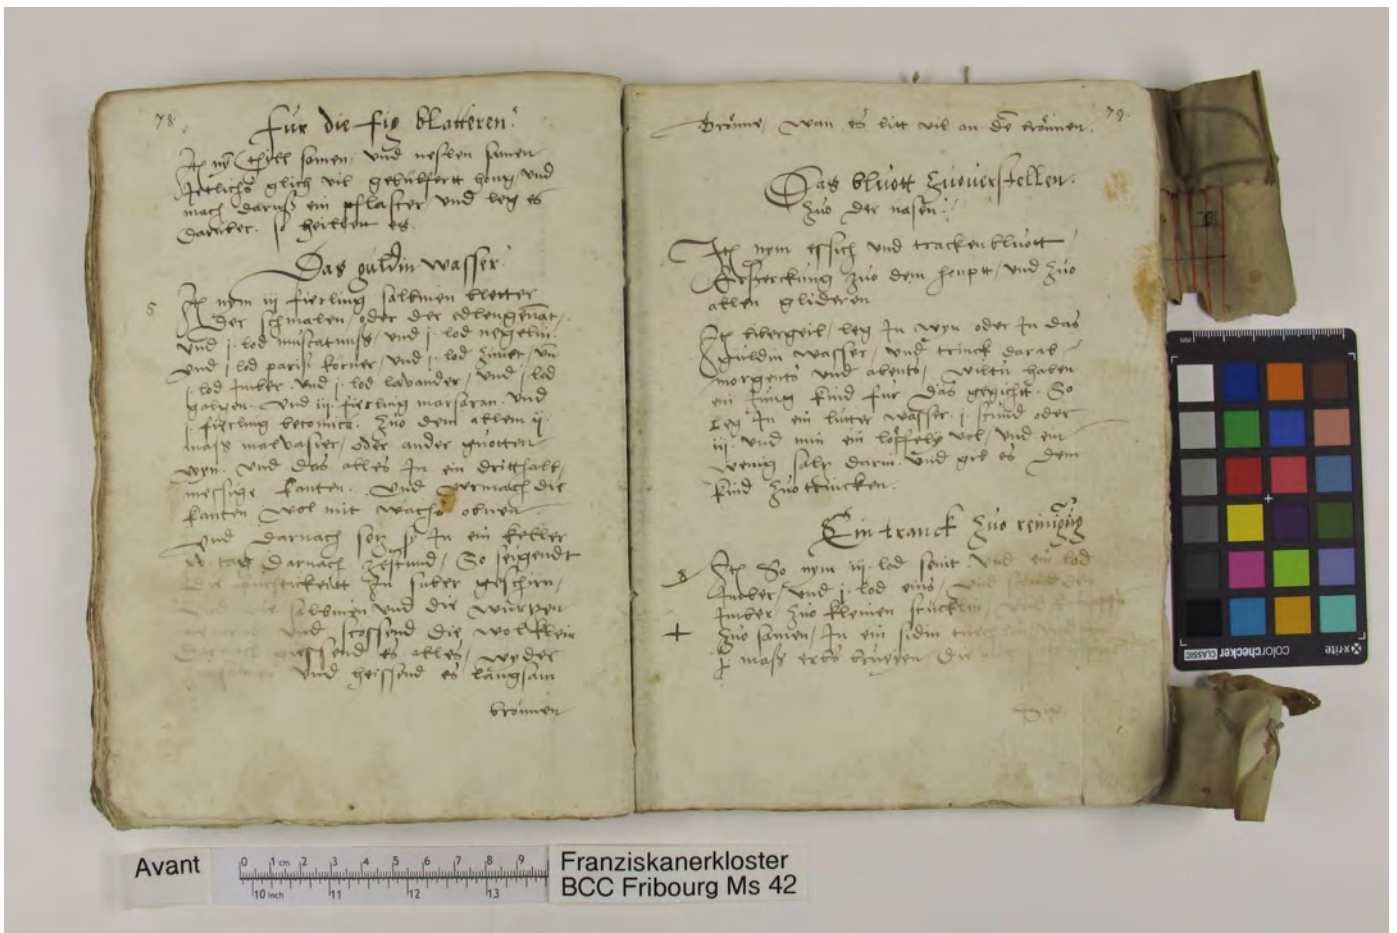 78
für die fig blatteren.
Itē nȳ Thyll somen, vnd neslen somen
Jetlichs glich vil gebülfertt hong, vnd
mach daruß ein pflaster, vnd leg es
darüber. so heillett es.
Das guldin wasser.
5 Itē nym iij fierling salbinen bletter
der schmalen, oder der edlengenāt,
vnd j. lod muscatnuss, vnd j. lod negelin.
vnd j lod paris körner, vnd j. lod zimet, vn̄
j. lod Imber. vnd j. lod lavander, vnd j lod
galgen. vnd iij. fierling marsaran. vnd
j. fierling betonica. zuo dem allem ij.
mass malvasier, oder ander guotten
wyn. vnd das alles In ein dritthalb,
messige kanten. vnd vermach die
kanten wol mit wachs obnen.
vnd darnach setz sÿ In ein keller
tag darnach So seigendt
In suber geschirr,
salbinen vnd die würtzen
vnd stossend die wol klein
giessend es alles, wyder
vnd heissend es langsam
brönnen
79.
Brönne, wan es litt vil an dē brönnen.
Das bluott zuouerstellen.
zuo der nasen.
Itē nym essich vnd trackenbluott
sterckung zuo dem houptt, vnd zuo
allen glideren
Itē bibergeil, leg In wyn oder In das
guldin wasser, vnd trinck darab
morgents vnd abents, wiltu haben
ein Jung kind für das gegichtt. So
leg In ein lutter wasser. j. stund oder
iij. vnd nim ein löffely vol, vnd ein
wenig saltz darin. vnd gib es dem
kind zuo trincken.
Ein tranck zuo reinigūg
Itē So nym iij. lod senit vnd ein lod
Imber, vnd j. lod enis,
Imber zuo kleinen stücklin,
+ zuo samen, In ein sidin
j mass erbs brueyen die
Avant
0 1 cm 2 3 4 5 6 7 8 9
10 inch 11 12 13
Franziskanerkloster
BCC Fribourg Ms 42
x-rite
colorchecker CLASSIC
mm